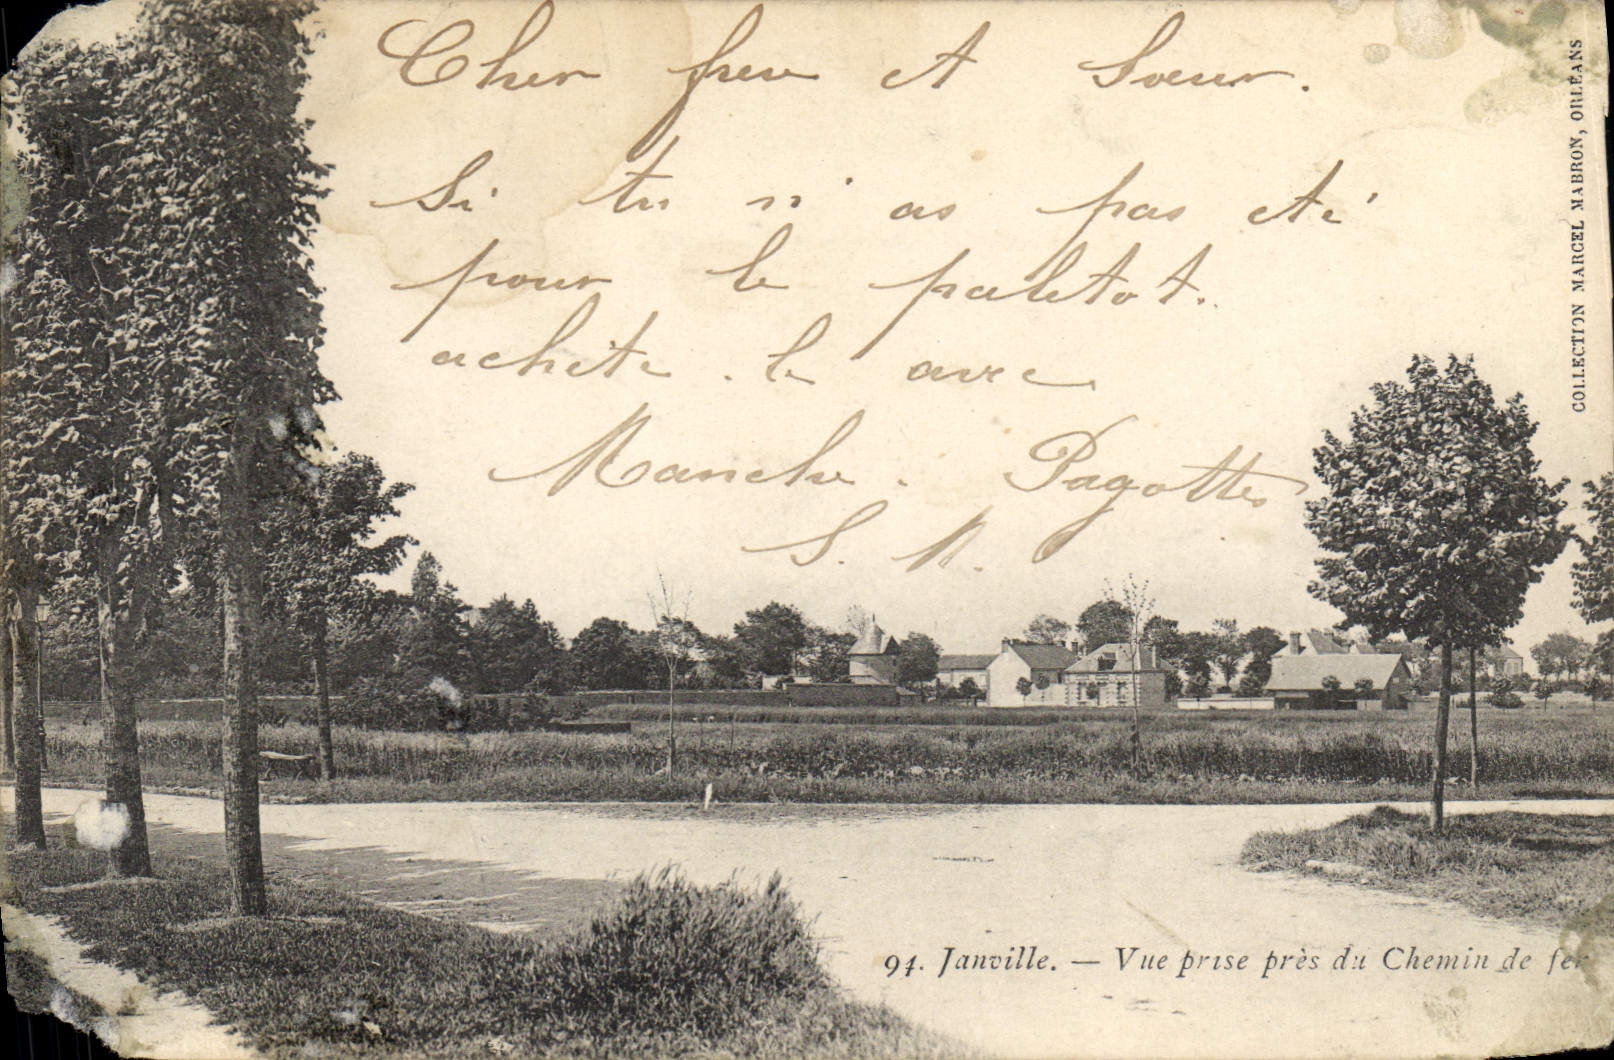 Cher frere et Sœur.
Si tu n'as pas eté
pour le paletot.
achète . le avec
Manche . Pagottes
S. N.
COLLECTION MARCEL MABRON, ORLÉANS
94. Janville. — Vue prise près du Chemin de fer